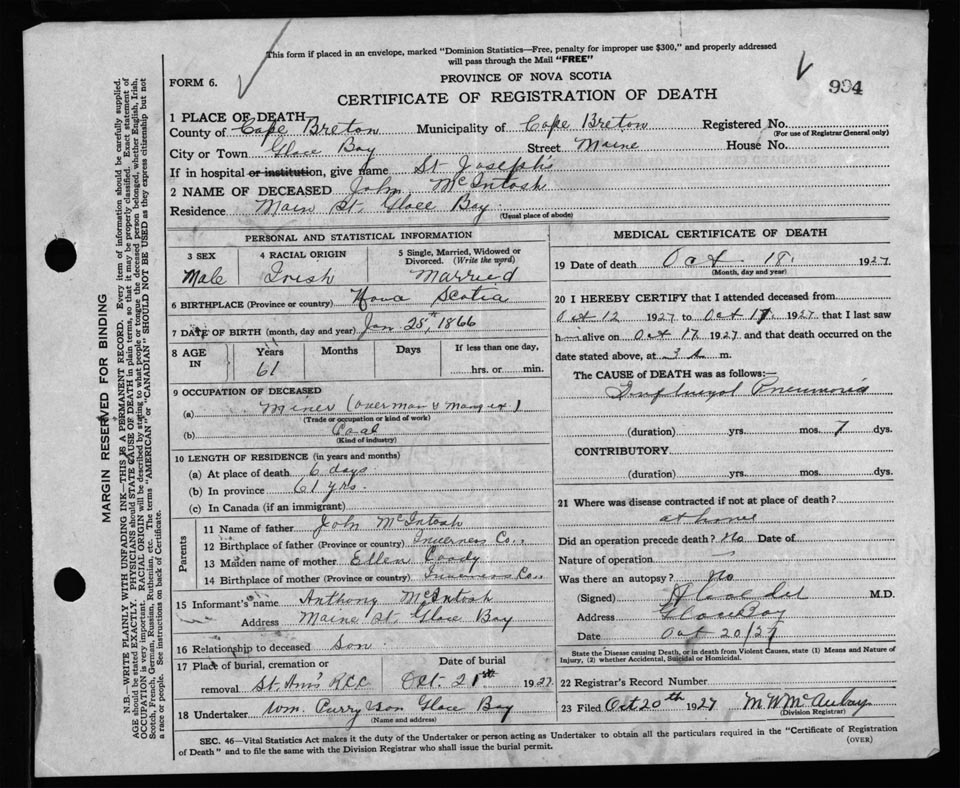 This form if placed in an envelope, marked "Dominion Statistics—Free, penalty for improper use $300," and properly addressed
will pass through the Mail "FREE"
FORM 6.
PROVINCE OF NOVA SCOTIA
994
CERTIFICATE OF REGISTRATION OF DEATH
1 PLACE OF DEATH
County of Cape Breton Municipality of Cape Breton Registered No.
(For use of Registrar General only)
City or Town Glace Bay Street Maine House No.
If in hospital or institution, give name St Joseph's
2 NAME OF DECEASED John McIntosh
Residence Main St. Glace Bay
(Usual place of abode)
PERSONAL AND STATISTICAL INFORMATION
3 SEX 4 RACIAL ORIGIN 5 Single, Married, Widowed or
Divorced. (Write the word)
Male Irish Married
6 BIRTHPLACE (Province or country) Nova Scotia
7 DATE OF BIRTH (month, day and year) Jan 25th, 1866
8 AGE IN Years Months Days If less than one day,
61 hrs. or min.
9 OCCUPATION OF DECEASED
(a) Miner (overman &
(Trade or occupation or kind of work)
(b) Coal
(Kind of industry)
10 LENGTH OF RESIDENCE (in years and months)
(a) At place of death 6 days
(b) In province 61 yrs.
(c) In Canada (if an immigrant)
Parents
11 Name of father John McIntosh
12 Birthplace of father (Province or country) Inverness Co.
13 Maiden name of mother Ellen Coody
14 Birthplace of mother (Province or country) Inverness Co.
15 Informant's name Anthony McIntosh
Address Maine St. Glace Bay
16 Relationship to deceased Son
17 Place of burial, cremation or Date of burial
removal St. Ann's RCC Oct. 21st 1927
18 Undertaker Wm. Curry & Son Glace Bay
(Name and address)
MEDICAL CERTIFICATE OF DEATH
19 Date of death Oct 18 1927
(Month, day and year)
20 I HEREBY CERTIFY that I attended deceased from
Oct 12 1927 to Oct 17 1927 that I last saw
him alive on Oct 17 1927 and that death occurred on the
date stated above, at 3 a m.
The CAUSE of DEATH was as follows:—
Pneumonia
(duration) yrs. mos. 7 dys.
CONTRIBUTORY
(duration) yrs. mos. dys.
21 Where was disease contracted if not at place of death?
at home
Did an operation precede death? No Date of
Nature of operation —
Was there an autopsy? No
(Signed) M.D.
Address Glace Bay
Date Oct 20/27
State the Disease causing Death, or in death from Violent Causes, state (1) Means and Nature of
Injury, (2) whether Accidental, Suicidal or Homicidal.
22 Registrar's Record Number
23 Filed Oct 20th 1927 M.W. McAulay
(Division Registrar)
SEC. 46—Vital Statistics Act makes it the duty of the Undertaker or person acting as Undertaker to obtain all the particulars required in the "Certificate of Registration
of Death" and to file the same with the Division Registrar who shall issue the burial permit.
(OVER)
MARGIN RESERVED FOR BINDING
N.B.—WRITE PLAINLY WITH UNFADING INK—THIS IS A PERMANENT RECORD. Every item of information should be carefully supplied.
AGE should be stated EXACTLY. PHYSICIANS should STATE CAUSE OF DEATH in plain terms, so that it may be properly classified. Exact statement of
OCCUPATION is very important. RACIAL ORIGIN will be described by stating to what people or tongue the deceased person belonged, whether English, Irish,
Scotch, French, German, Russian, Ruthenian, etc. The terms "AMERICAN" or "CANADIAN" SHOULD NOT BE USED as they express citizenship but not
a race or people. See instructions on back of Certificate.